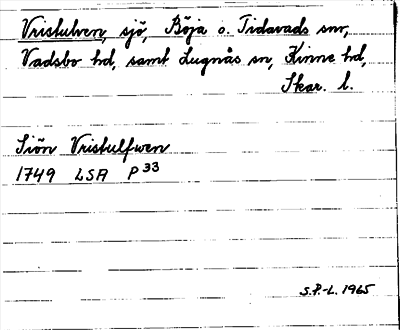 Vristulven, sjö, Böja o. Tidavads snr,
Vadsbo hd, samt Lugnås sn, Kinne hd,
Skar. l.
Siön Vristulfwen
1749 LSA P 33
S.P.-L. 1965